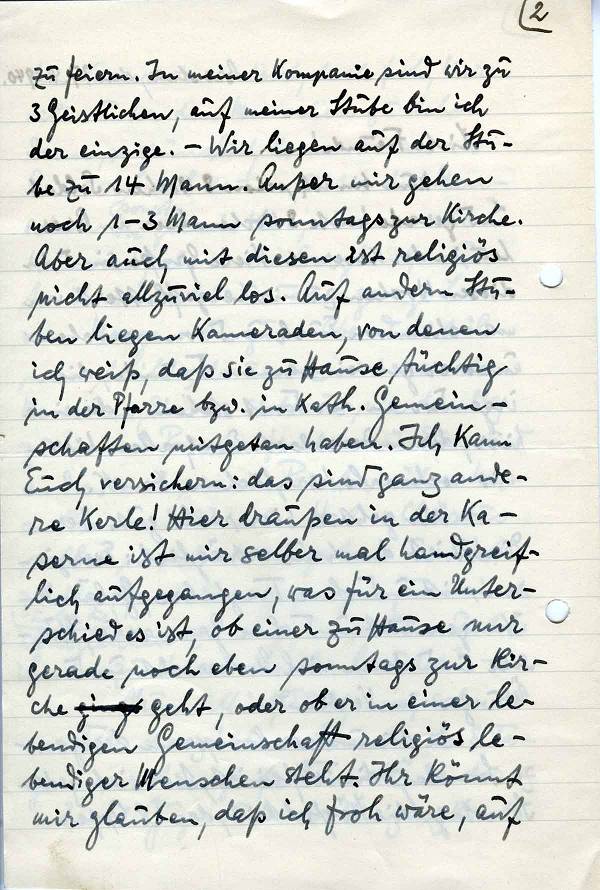 2
zu feiern. In meiner Kompanie sind wir zu
3 Geistlichen, auf meiner Stube bin ich
der einzige. – Wir liegen auf der Stu-
be zu 14 Mann. Außer mir gehen
noch 1–3 Mann sonntags zur Kirche.
Aber auch mit diesen ist religiös
nicht allzuviel los. Auf andern Stu-
ben liegen Kameraden, von denen
ich weiß, daß sie zu Hause tüchtig
in der Pfarre bzw. in Kath. Gemein-
schaften mitgetan haben. Ich kann
Euch versichern: das sind ganz ande-
re Kerle! Hier draußen in der Ka-
serne ist mir selber mal handgreif-
lich aufgegangen, was für ein Unter-
schied es ist, ob einer zu Hause nur
gerade noch eben sonntags zur Kir-
che geht, oder ob er in einer le-
bendigen Gemeinschaft religiös le-
bendiger Menschen steht. Ihr könnt
mir glauben, daß ich froh wäre, auf